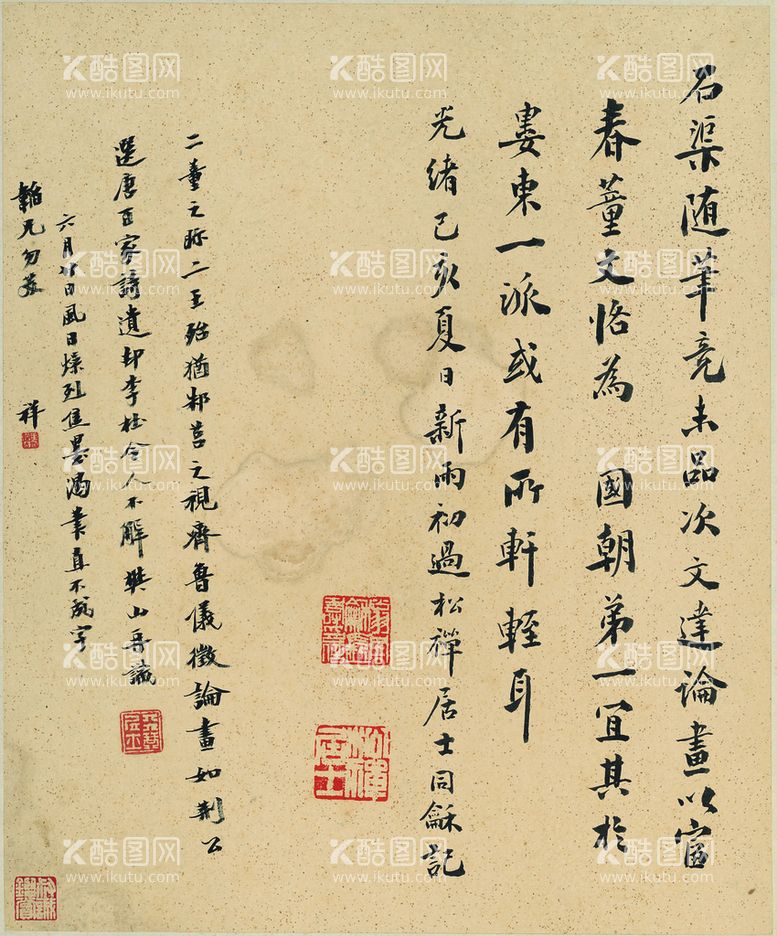 石渠随筆竟未品次文達論畫以富
春董文恪為國朝第一宜其於
婁東一派或有所軒輊耳
光緒己亥夏日新雨初過松禪居士同龢記
松禪居士
二董之眎二王殆猶邾莒之視齊魯儀徵論畫如荊公
選唐百家詩遺却李杜令人不解樊山再識
六月廿日風日燥烈隹墨渴筆直不成字
韜兄勿 祥
酷图网
www.ikutu.com